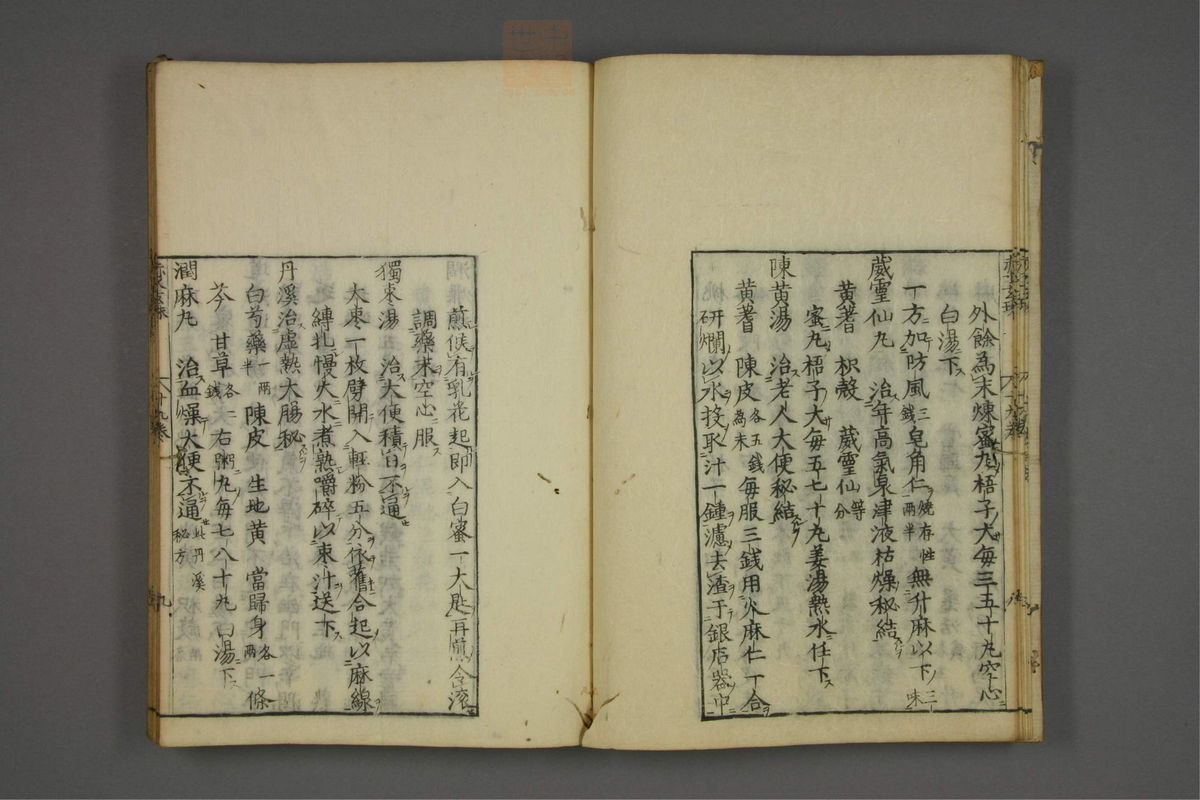 外餘為末煉蜜丸梧子大每三五十丸空心
白湯下
一方加防風三錢皂角仁燒存性兩半無升麻以下三味
葳靈仙丸　治年高氣衰津液枯燥秘結
黄耆　枳殼　葳靈仙等分
蜜丸梧子大每五七十丸姜湯熱水任下
陳黄湯　治老人大便秘結
黄耆　陳皮各五錢為末每服三錢用火麻仁一合
研爛以水投取汁一鍾濾去渣于銀石器中
煎候有乳花起即入白蜜一大匙再煎令滚
調藥末空心服
獨棗湯　治大便積日不通
大棗一枚劈開入輕粉五分依舊合起以麻線
縛扎慢火水煮熟嚼碎以棗汁送下
丹溪治虛熱大腸秘
白芍藥一兩半陳皮　生地黄　當歸身各一兩條
芩　甘草各二錢右粥丸每七八十丸白湯下
潤麻丸　治血燥大便不通此丹溪秘方
十九卷
九